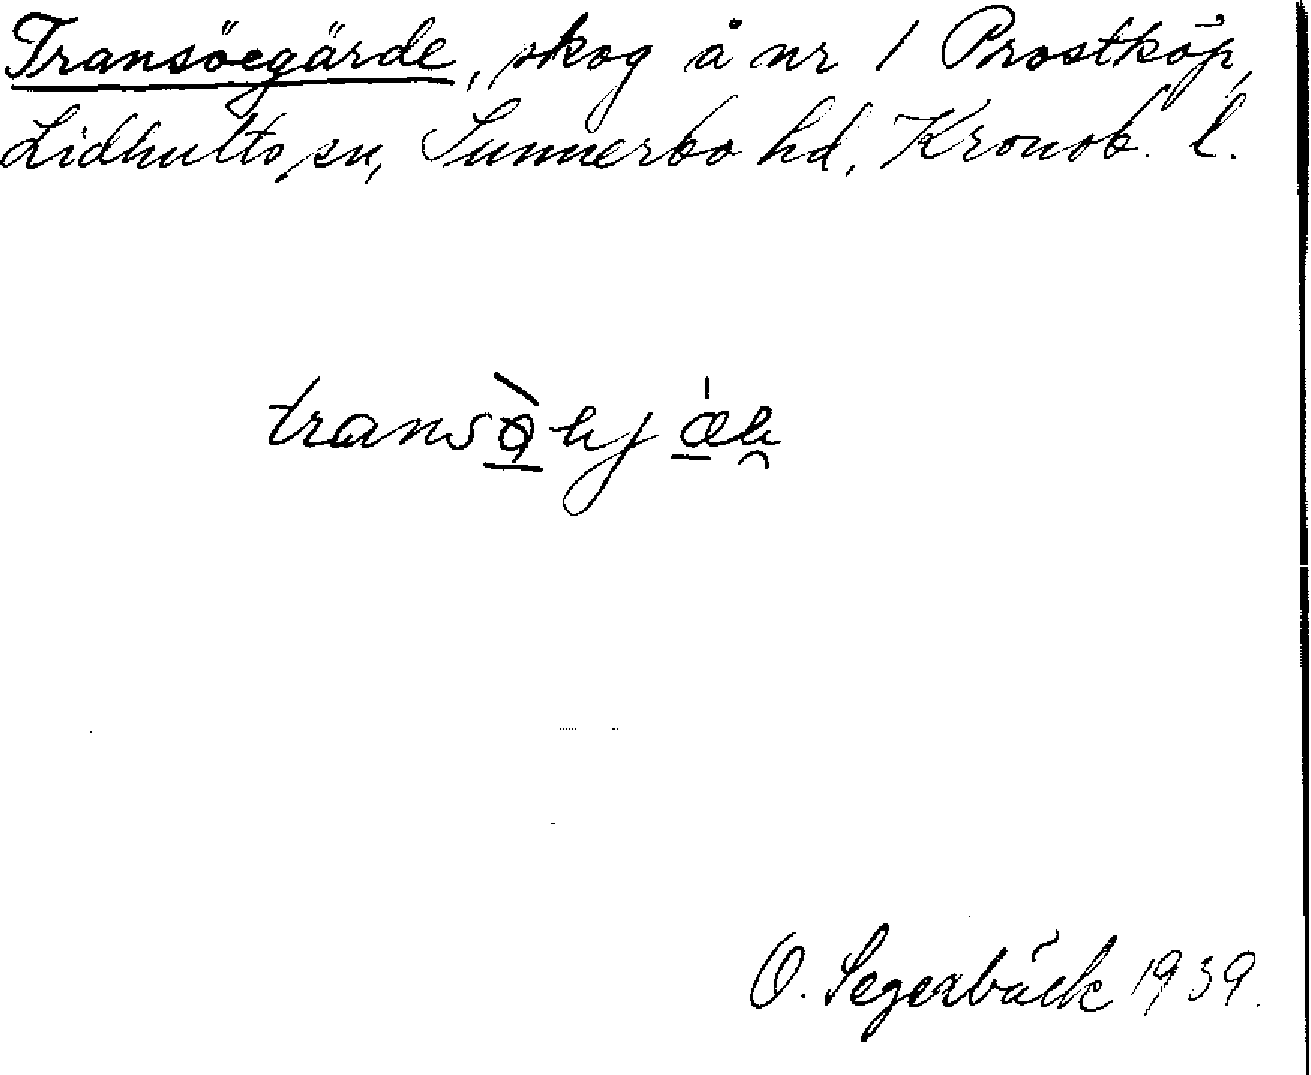 Transöegärde, skog å nr 1 Prostköp,
Lidhults sn, Sunnerbo hd, Kronob. l.
O. Segerbäck 1939.